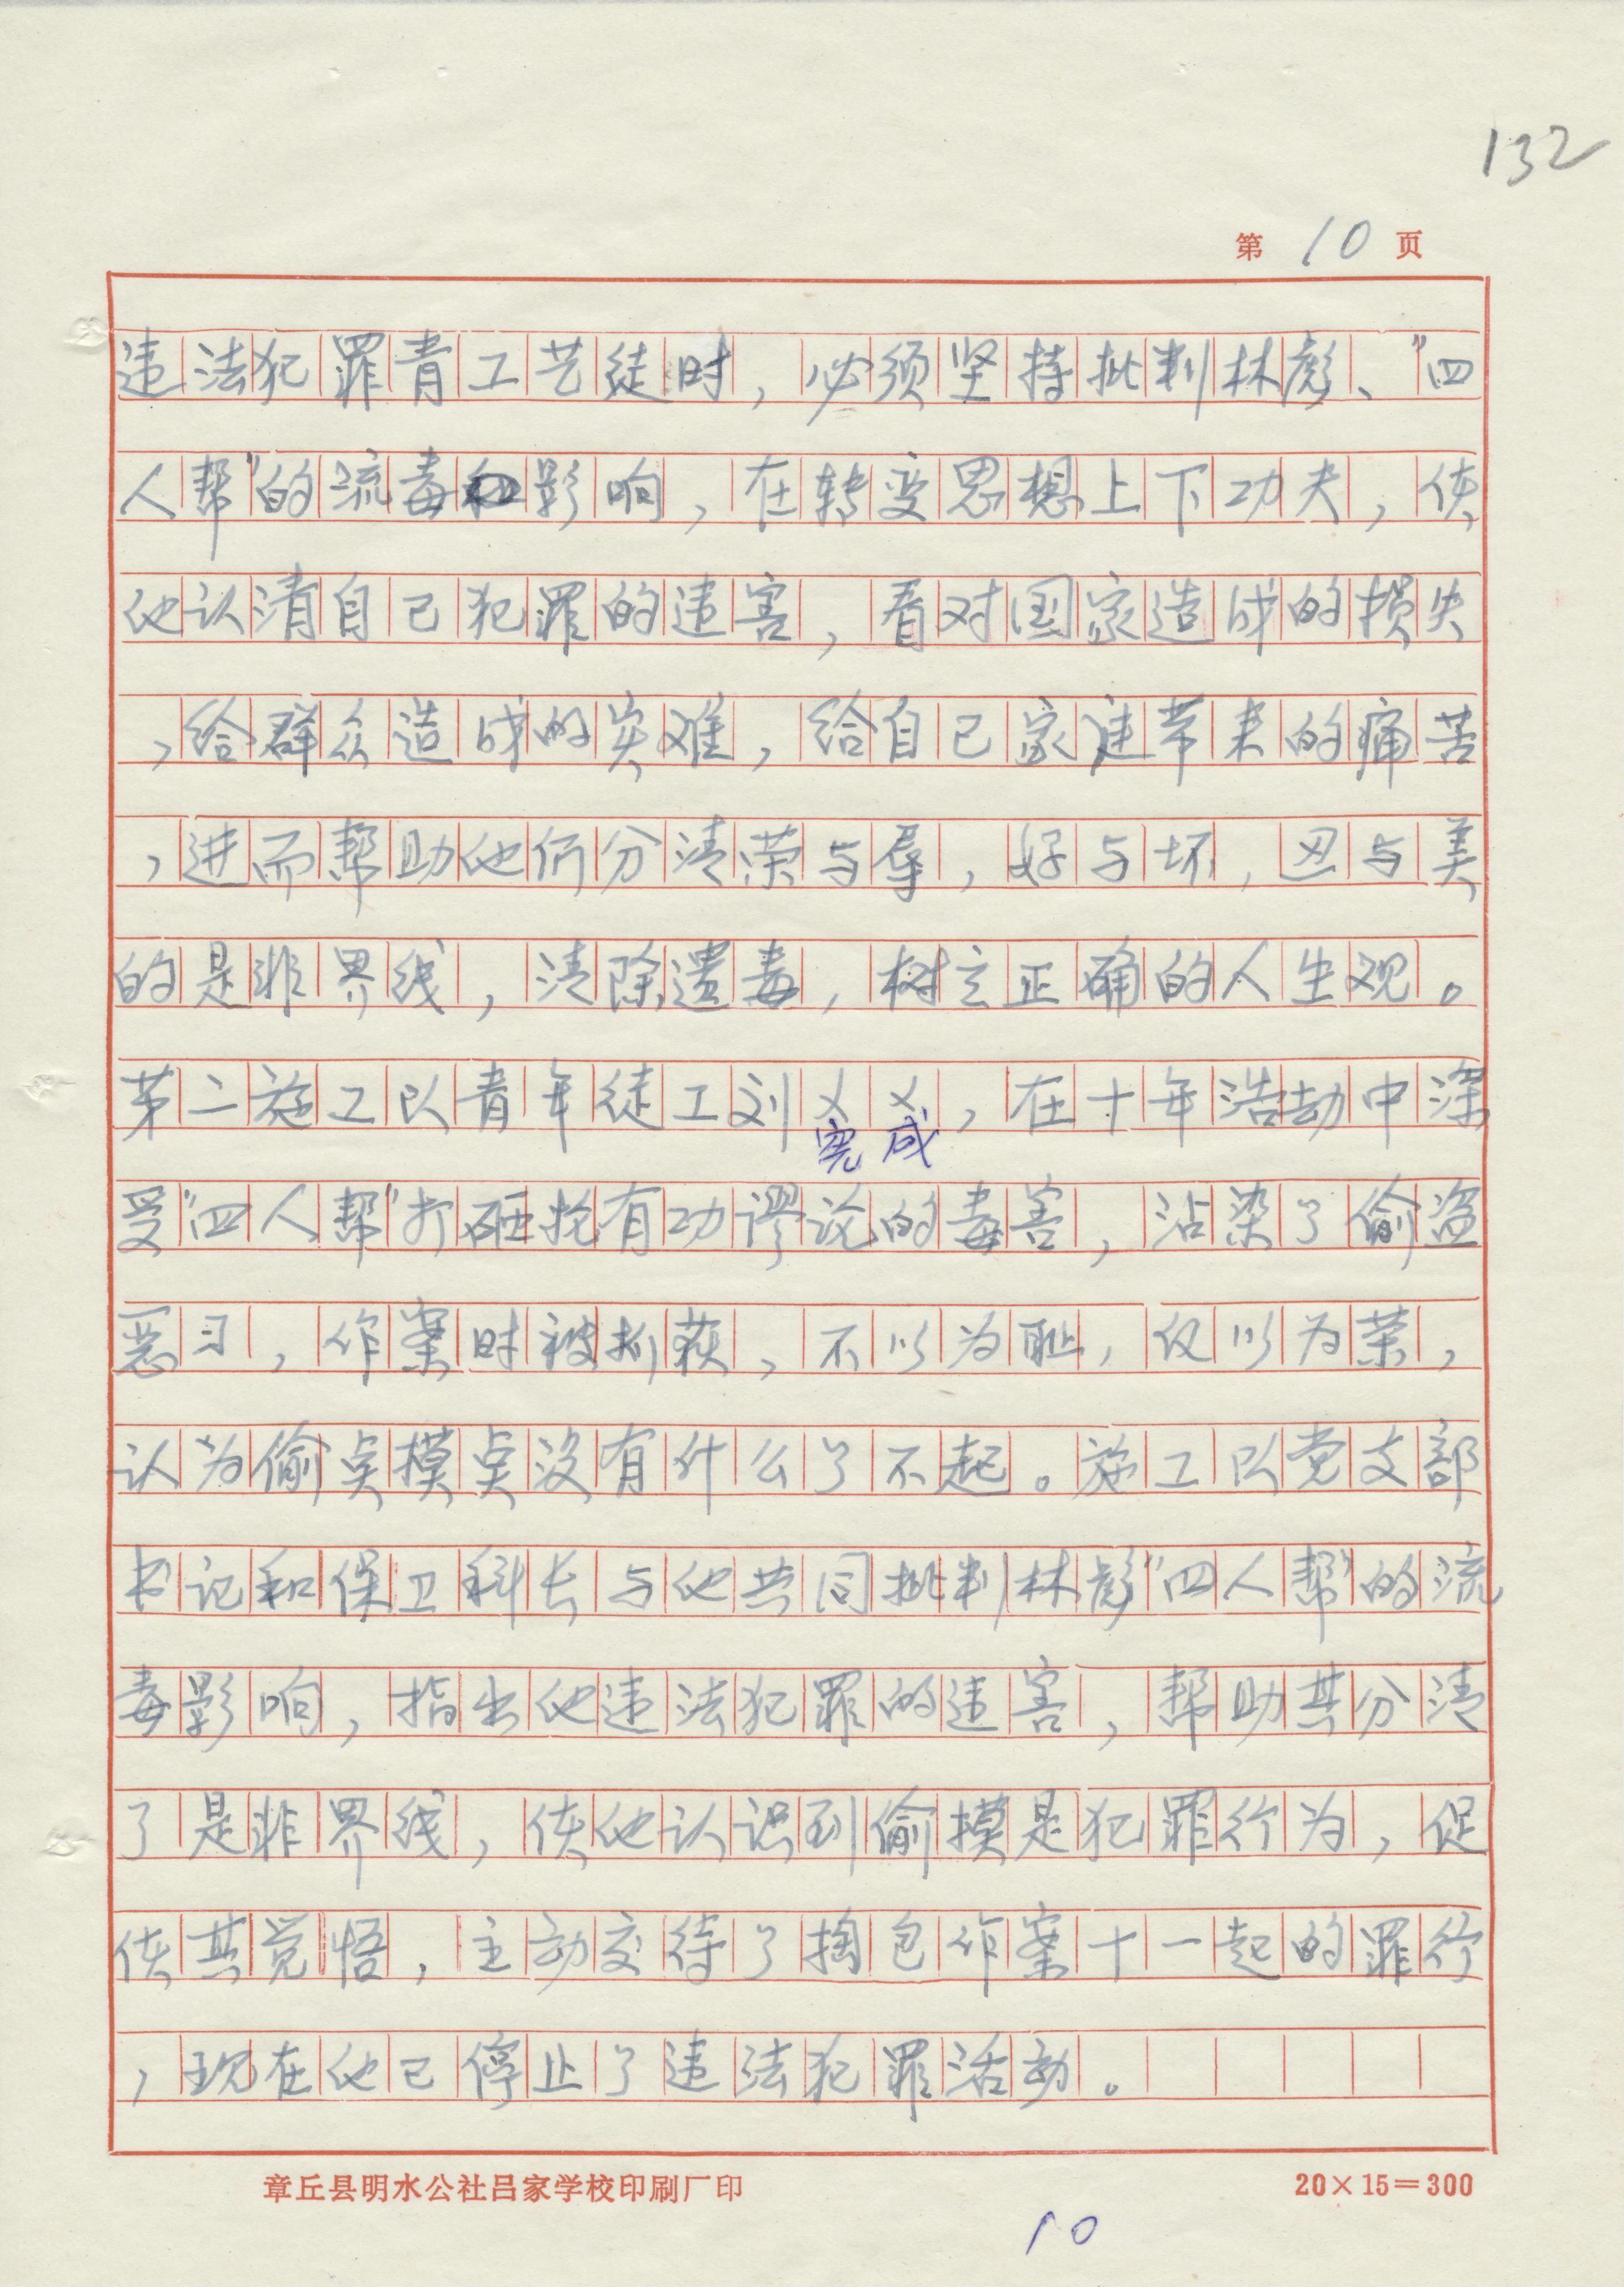 132
第 10 页
违法犯罪青工艺徒时，必须坚持批判林彪、“四
人帮”的流毒和影响，在转变思想上下功夫，使
他认清自己犯罪的违害，看对国家造成的损失
，给群众造成的灾难，给自己家庭带来的痛苦
，进而帮助他们分清荣与辱，好与坏，丑与美
的是非界线，清除遗毒，树立正确的人生观。
第二施工队青年徒工刘××，在十年浩劫中深
完成
受“四人帮”打砸抢有功谬论的毒害，沾染了偷盗
恶习，作案时被抓获，不以为耻，仅以为荣，
认为偷点摸点没有什么了不起。施工队党支部
书记和保卫科长与他共同批判林彪“四人帮”的流
毒影响，指出他违法犯罪的违害，帮助其分清
了是非界线，使他认识到偷摸是犯罪行为，促
使其觉悟，主动交待了掏包作案十一起的罪行
，现在他已停止了违法犯罪活动。
章丘县明水公社吕家学校印刷厂印
20×15＝300
10